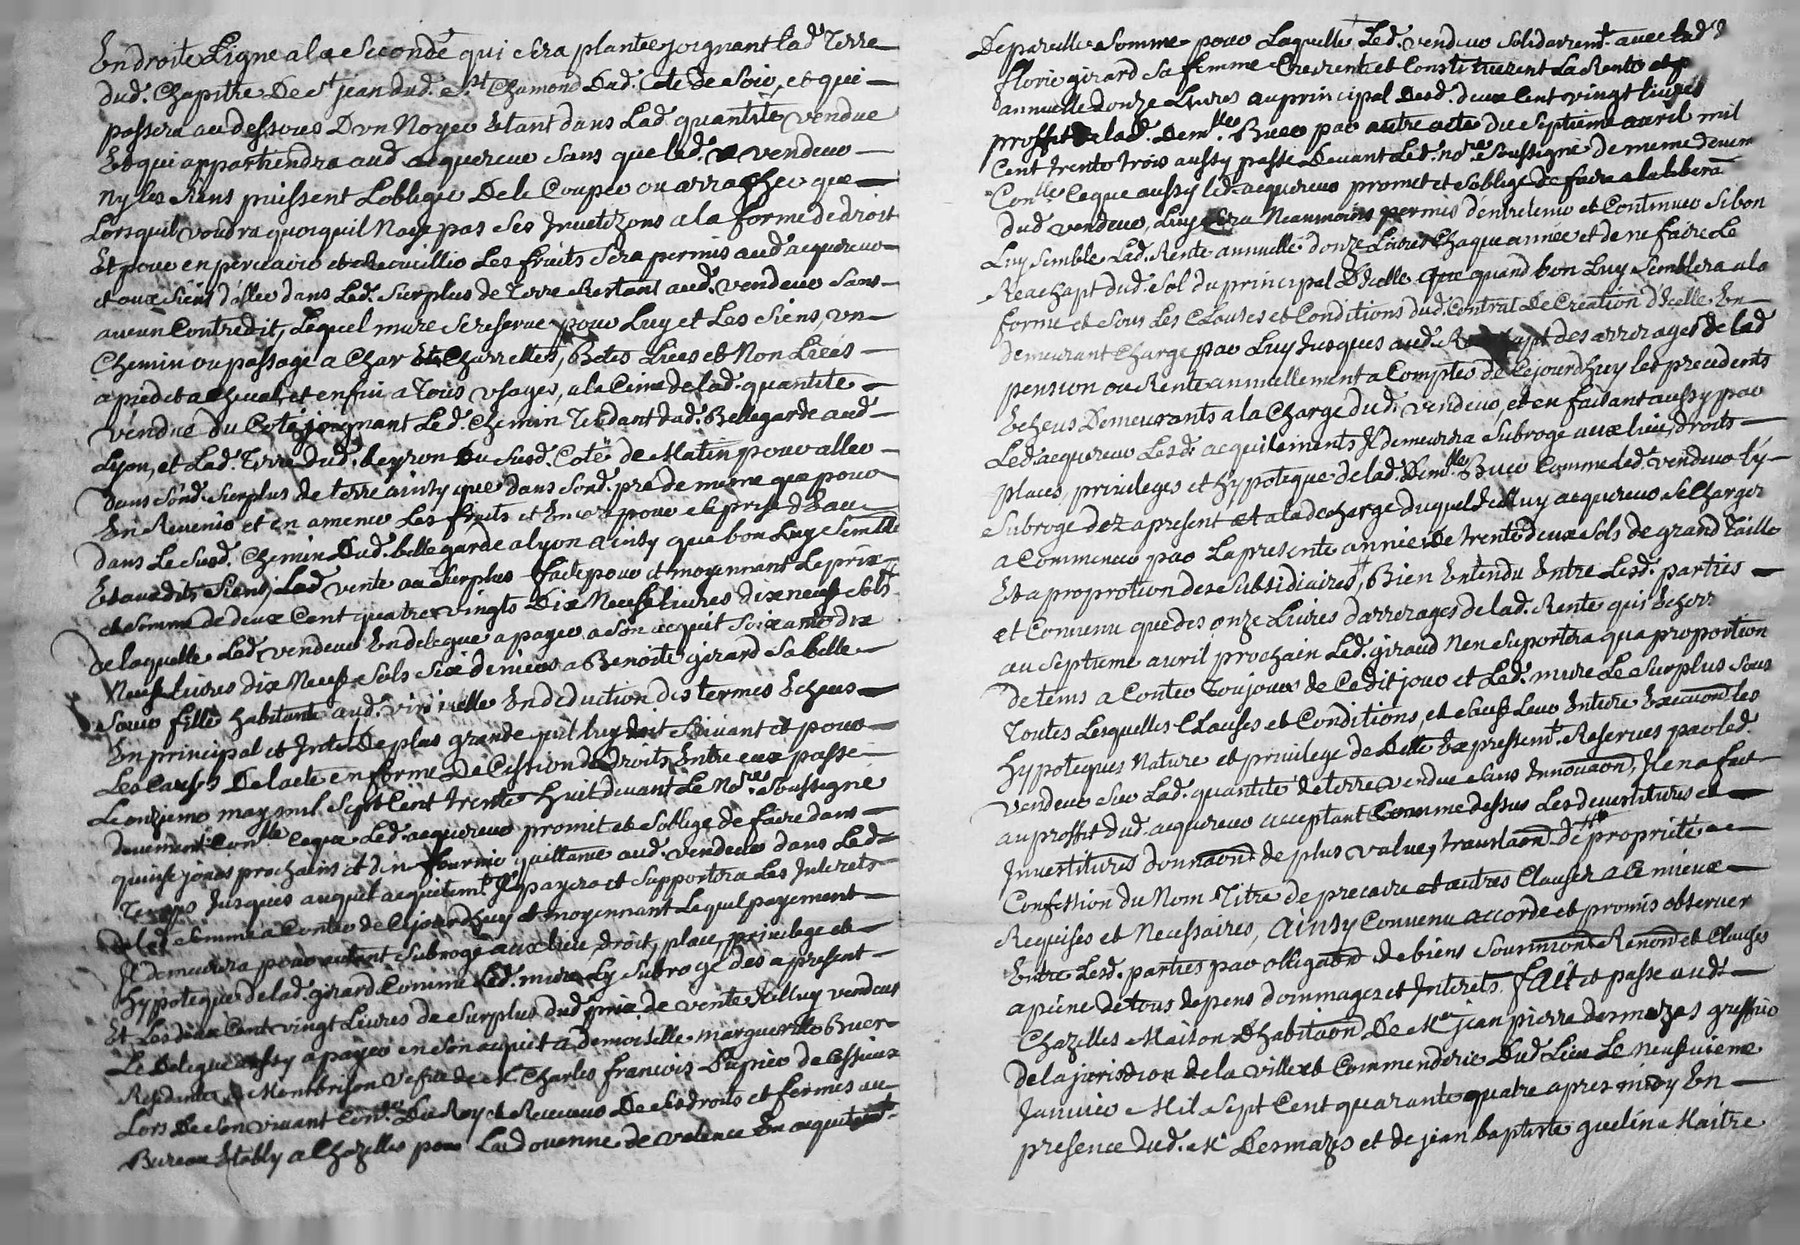 En droite Ligne a la seconde qui sera plantée joignant lad. Terre
dud. Chapitre De st jean dud. st Chamond Dud. Coté de soir, et qui
passera au dessous D'un Noyer Etant dans Lad. quantité vendue
Et qui appartiendra aud. acquereur sans que led. vendeur
ny les siens puissent L'obliger De le Couper ou arracher que
Lorsquil voudra quoiquil Naye pas ses a la forme de droit
Et pour en percevoir et Recueillir Les fruits sera permis aud. acquereur
et aux siens d'aller dans Led. surplus de Terre Restant aud. vendeur sans
aucun Contredit, Lequel mure se reserve pour Luy et Les siens, un
Chemin ou passage a Char Et Charrettes, Betes Liées et Non Liées
a pied et a cheval, et enfin a Tous usages, a la Cime de lad. quantité
vendue du Coté joignant Led. Chemin Tendant dud. Bellegarde aud.
Lyon, et Lad. Terre dud. Leyron Du susd. Coté de Matin pour aller
dans sond. surplus de terre ainsy que dans sond. pré de meme que pour
En Revenir et en amener Les fruits et Encore pour la prise d'Eau
dans Le susd. Chemin Dud. bellegarde a lyon ainsy que bon Luy semble
Et auxdits siens, Lad. vente au surplus faite pour et moyennant Le prix
et somme de deux Cent quatre vingts Dix Neuf livres dix neuf sols
de laquelle Led. vendeur En delegue a payer a son acquit soixante dix
Neuf livres dix Neuf sols six deniers a Benoite girard sa belle
soeur fille habitante aud. En deduction des termes Echeus
En principal et De plus grande qu'il luy doit suivant et pour
Les Causes De lacte en forme De Cession de Droits Entre eux passé
Le onzieme may mil sept Cent trente huit devant Le Nore. soussigné
deuement Conllé Ceque Led. acquereur promet et soblige de faire dans
quinze jours prochains et d'en fournir quittance aud. vendeur dans Led.
Temps Jusques auquel acquitemt. Il payera et supportera Les Interets
de lad. somme a Conter de Cejourdhuy et moyennant Lequel payement
Il demeurera pour autant subrogé aux lieu, droit, place, privilege et
hypoteque de lad. girard Comme Led. mure Ly subroge des a present
Et Les deux Cent vingt Livres de surplus dud. prix de vente Icelluy vendeur
Le Delegue aussy a payer en son acquit a demoiselle margueritte Buer
Residante a Montbrison veuve de Mr. Charles francois Dugnieu de Cessieux
Lors De son vivant Conter. Du Roy et Receveur De ses droits et fermes au
Bureau Etably a Chazelles pour La douanne de valence En acquitemt.
De pareille somme pour Laquelle Led. vendeur solidairemt. avec lad.
florie girard sa femme Creerent et Constituerent La Rente
annuelle donze Livres au principal desd. deux Cent vingt livres
proffit de lad. Demlle. Buer par autre acte Du septieme avril mil
Cent trente trois aussy passé Devant Led. nore. soussigné de meme
Conllé. Ceque aussy led. acquereur promet et soblige de faire a la
dud. vendeur, Luy sera Neanmoins permis d'entretenir et Continuer si bon
Luy semble Lad. Rente annuelle d'onze Livres Chaque année et de ne faire Le
Reachapt dud. sol du principal D'icelle que quand bon Luy semblera a la
forme et sous Les Clauses et Conditions dud. Contrat De Creation d'Icelle En
demeurant Chargé par Luy Jusques aud. Reachapt des arrerages de lad.
pension ou Rente annuellement a Compter de Cejourdhuy les precedents
Echeus Demeurants a la Charge dud. vendeur, et en faisant aussy par
Led. acquereur Lesd. acquitements Il demeurera subrogé aux lieu, droits
places, privileges et hypoteque de lad. Demlle. Buer Comme led. vendeur ly
subroge dez a present et a la decharge duquel Icelluy acquereur se Charge
a Commencer par La presente année De trente deux sols de grand Taille
Et a proprotion des subsidiaires, Bien Entendu Entre Lesd. parties
et Convenu que des onze Livres d'arrerages de lad. Rente qui Echerr
au septieme avril prochain Led. giraud N'en suportera qua proportion
de tems a Conter Toujours de Cedit jour et Led. mure Le surplus sous
Toutes Lesquelles Clauses et Conditions, et sauf Leur Entiere Execuon. les
hypoteques Nature et privilege de Dette Expressemt. Reservés par led.
vendeur sur Lad. quantité de terre vendue sans Innovaon., Il en a fait
au proffit dud. acquereur acceptant Comme dessus Les devestitures et
Investitures donnaon. de plus value, translaon. De proprieté
Confession du Nom Titre de precaire et autres Clauses a Ce mieux
Requises et Necessaires, Ainsy Convenu accordé et promis observer
Entre Lesd. parties par obligaon. de biens soumission Renonon. et Clauses
a peine de tous depens dommages et Interets. fait et passé aud.
Chazelles Maison D'habitaon. De Me jean pierre dermazes greffier
de la jurisdion de la ville et Commenderie Dud. Lieu Le Neufvieme
Janvier Mil sept Cent quarante quatre apres midy En
presence dud. Me Desmazes et de jean baptiste gueline Maitre